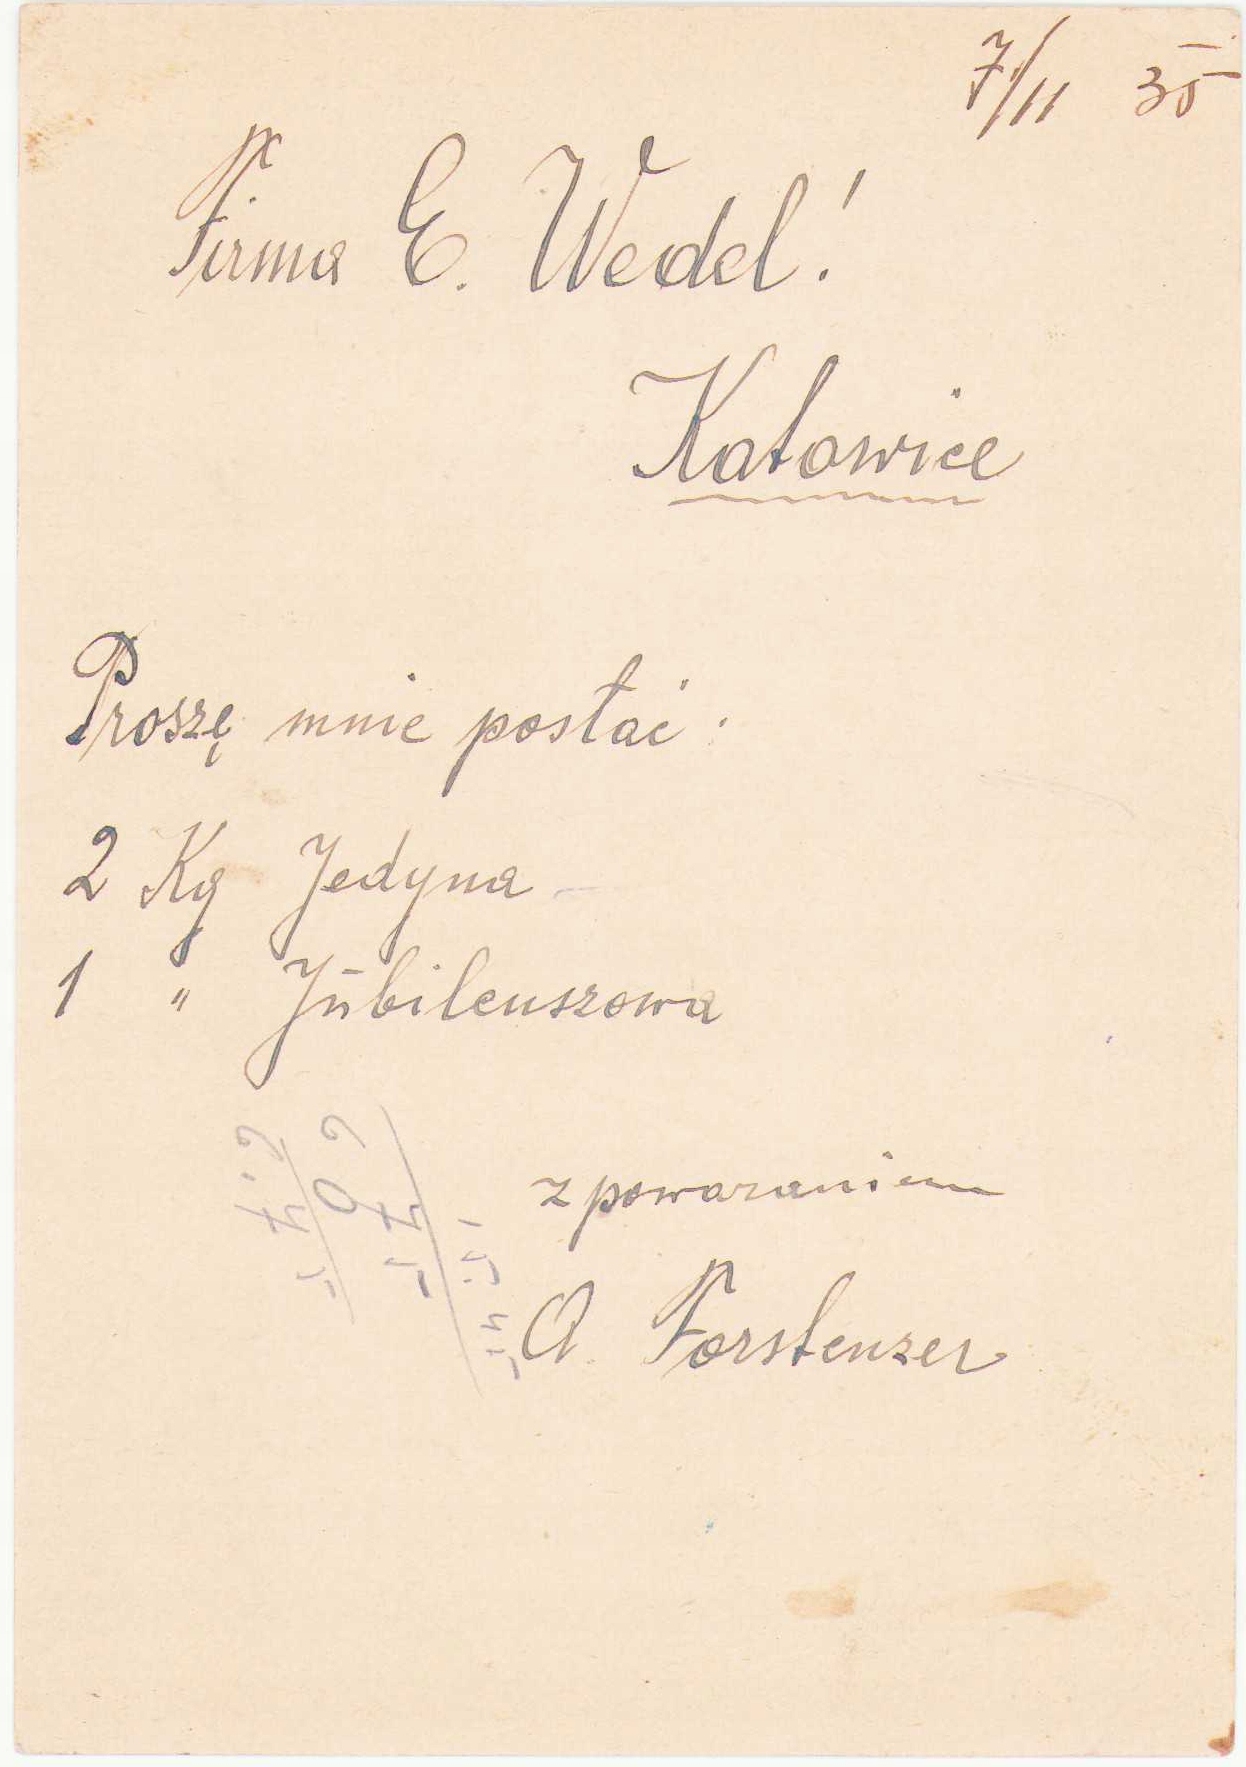 7/11 35
Firma E. Wedel!
Katowice
Proszę mnie posłać:
2 Kg Jedyna
1 " Jubileuszowa
z powazaniem
A. Forstenzer